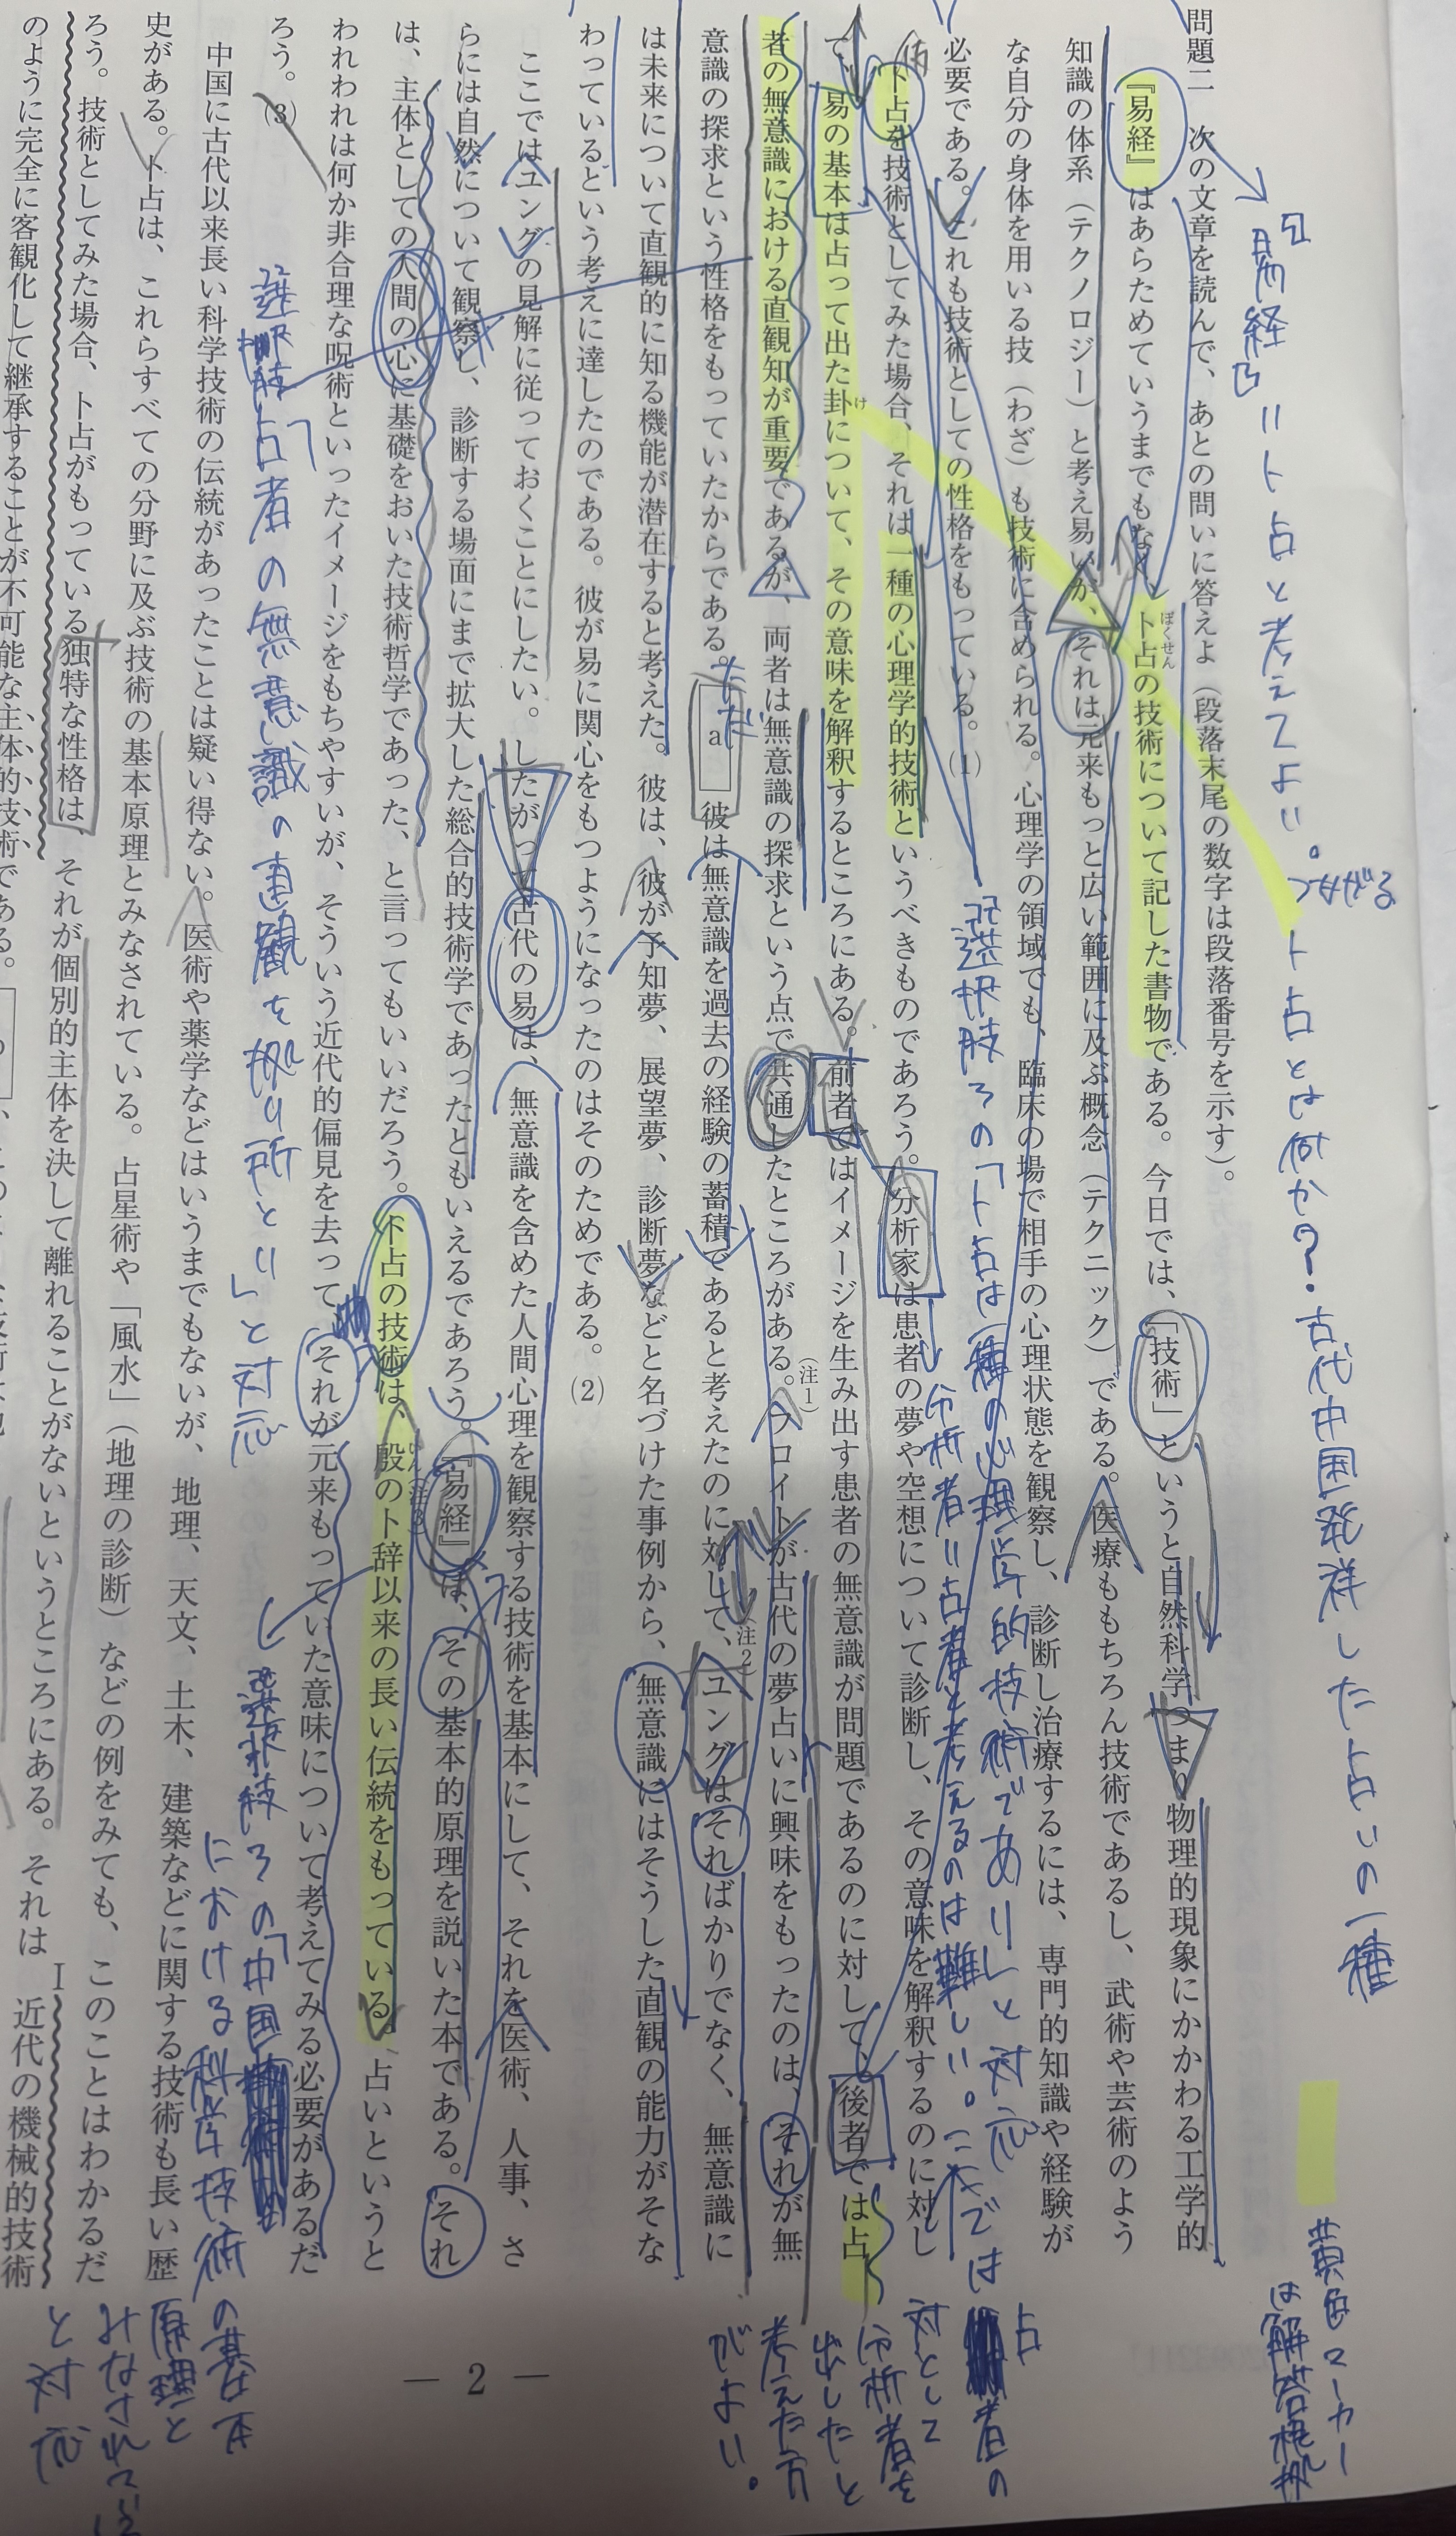 問題二　次の文章を読んで、あとの問いに答えよ（段落末尾の数字は段落番号を示す）。
『易経』はあらためていうまでもなく、卜占の技術について記した書物である。今日では、「技術」というと自然科学つまり物理的現象にかかわる工学的
ぼくせん
知識の体系（テクノロジー）と考え易いが、それは元来もっと広い範囲に及ぶ概念（テクニック）である。医療ももちろん技術であるし、武術や芸術のよう
な自分の身体を用いる技（わざ）も技術に含められる。心理学の領域でも、臨床の場で相手の心理状態を観察し、診断し治療するには、専門的知識や経験が
必要である。これも技術としての性格をもっている。(1)
卜占を技術としてみた場合、それは一種の心理学的技術というべきものであろう。分析家は患者の夢や空想について診断し、その意味を解釈するのに対し
て、易の基本は占って出た卦について、その意味を解釈するところにある。前者ではイメージを生み出す患者の無意識が問題であるのに対して、後者では占
け
者の無意識における直観知が重要であるが、両者は無意識の探求という点で共通したところがある。フロイトが古代の夢占いに興味をもったのは、それが無
(注1)
意識の探求という性格をもっていたからである。a 彼は無意識を過去の経験の蓄積であると考えたのに対して、ユングはそればかりでなく、無意識に
ただ
(注2)
は未来について直観的に知る機能が潜在すると考えた。彼は、彼が予知夢、展望夢、診断夢などと名づけた事例から、無意識にはそうした直観の能力がそな
わっているという考えに達したのである。彼が易に関心をもつようになったのはそのためである。(2)
ここではユングの見解に従っておくことにしたい。したがって古代の易は、無意識を含めた人間心理を観察する技術を基本にして、それを医術、人事、さ
らには自然について観察し、診断する場面にまで拡大した総合的技術学であったともいえるであろう。『易経』は、その基本的原理を説いた本である。それ
は、主体としての人間の心に基礎をおいた技術哲学であった、と言ってもいいだろう。卜占の技術は、殷の卜辞以来の長い伝統をもっている。占いというと
いん(注3)
われわれは何か非合理な呪術といったイメージをもちやすいが、そういう近代的偏見を去って、それが元来もっていた意味について考えてみる必要があるだ
ろう。(3)
中国に古代以来長い科学技術の伝統があったことは疑い得ない。医術や薬学などはいうまでもないが、地理、天文、土木、建築などに関する技術も長い歴
史がある。卜占は、これらすべての分野に及ぶ技術の基本原理とみなされている。占星術や「風水」（地理の診断）などの例をみても、このことはわかるだ
ろう。技術としてみた場合、卜占がもっている独特な性格は、それが個別的主体を決して離れることがないというところにある。それは I 近代の機械的技術
のように完全に客観化して継承することが不可能な主体的技術である。
『易経』＝卜占と考えてよい。
つながる
卜占とは何か？古代中国発祥した占いの一種
黄色マーカー
は解答根拠
選択肢ろの「卜占は一種の心理学的技術であり」と対応
分析者＝占者と考えるのは難しい。ここでは占者の
対として
分析者を
出したと
考えた方
がよい。
選択肢「占者の無意識の直観を拠り所とし」と対応
選択肢ろの「中国
における科学技術の基本
原理と
みなされている
と対応
— 2 —